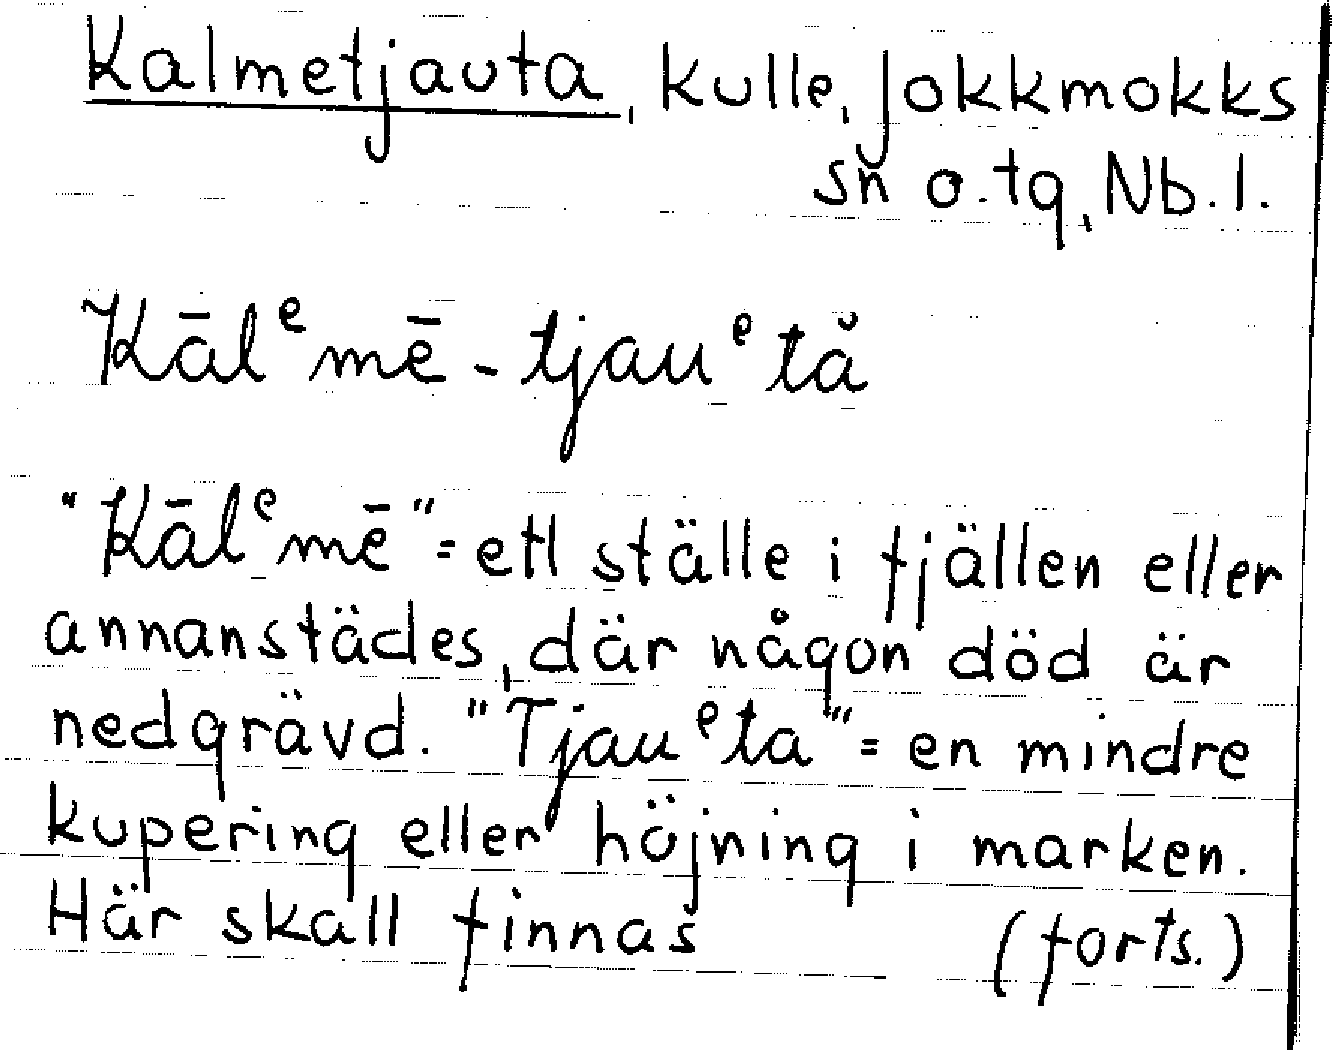 Kalmetjauta, kulle, Jokkmokks
sn o. tg, Nb. l.
Kālᵉmē-tjauᵉtă
"Kālᵉmē" = ett ställe i fjällen eller
annanstädes, där någon död är
nedgrävd. "Tjauᵉta" = en mindre
kupering eller höjning i marken.
Här skall finnas (forts.)